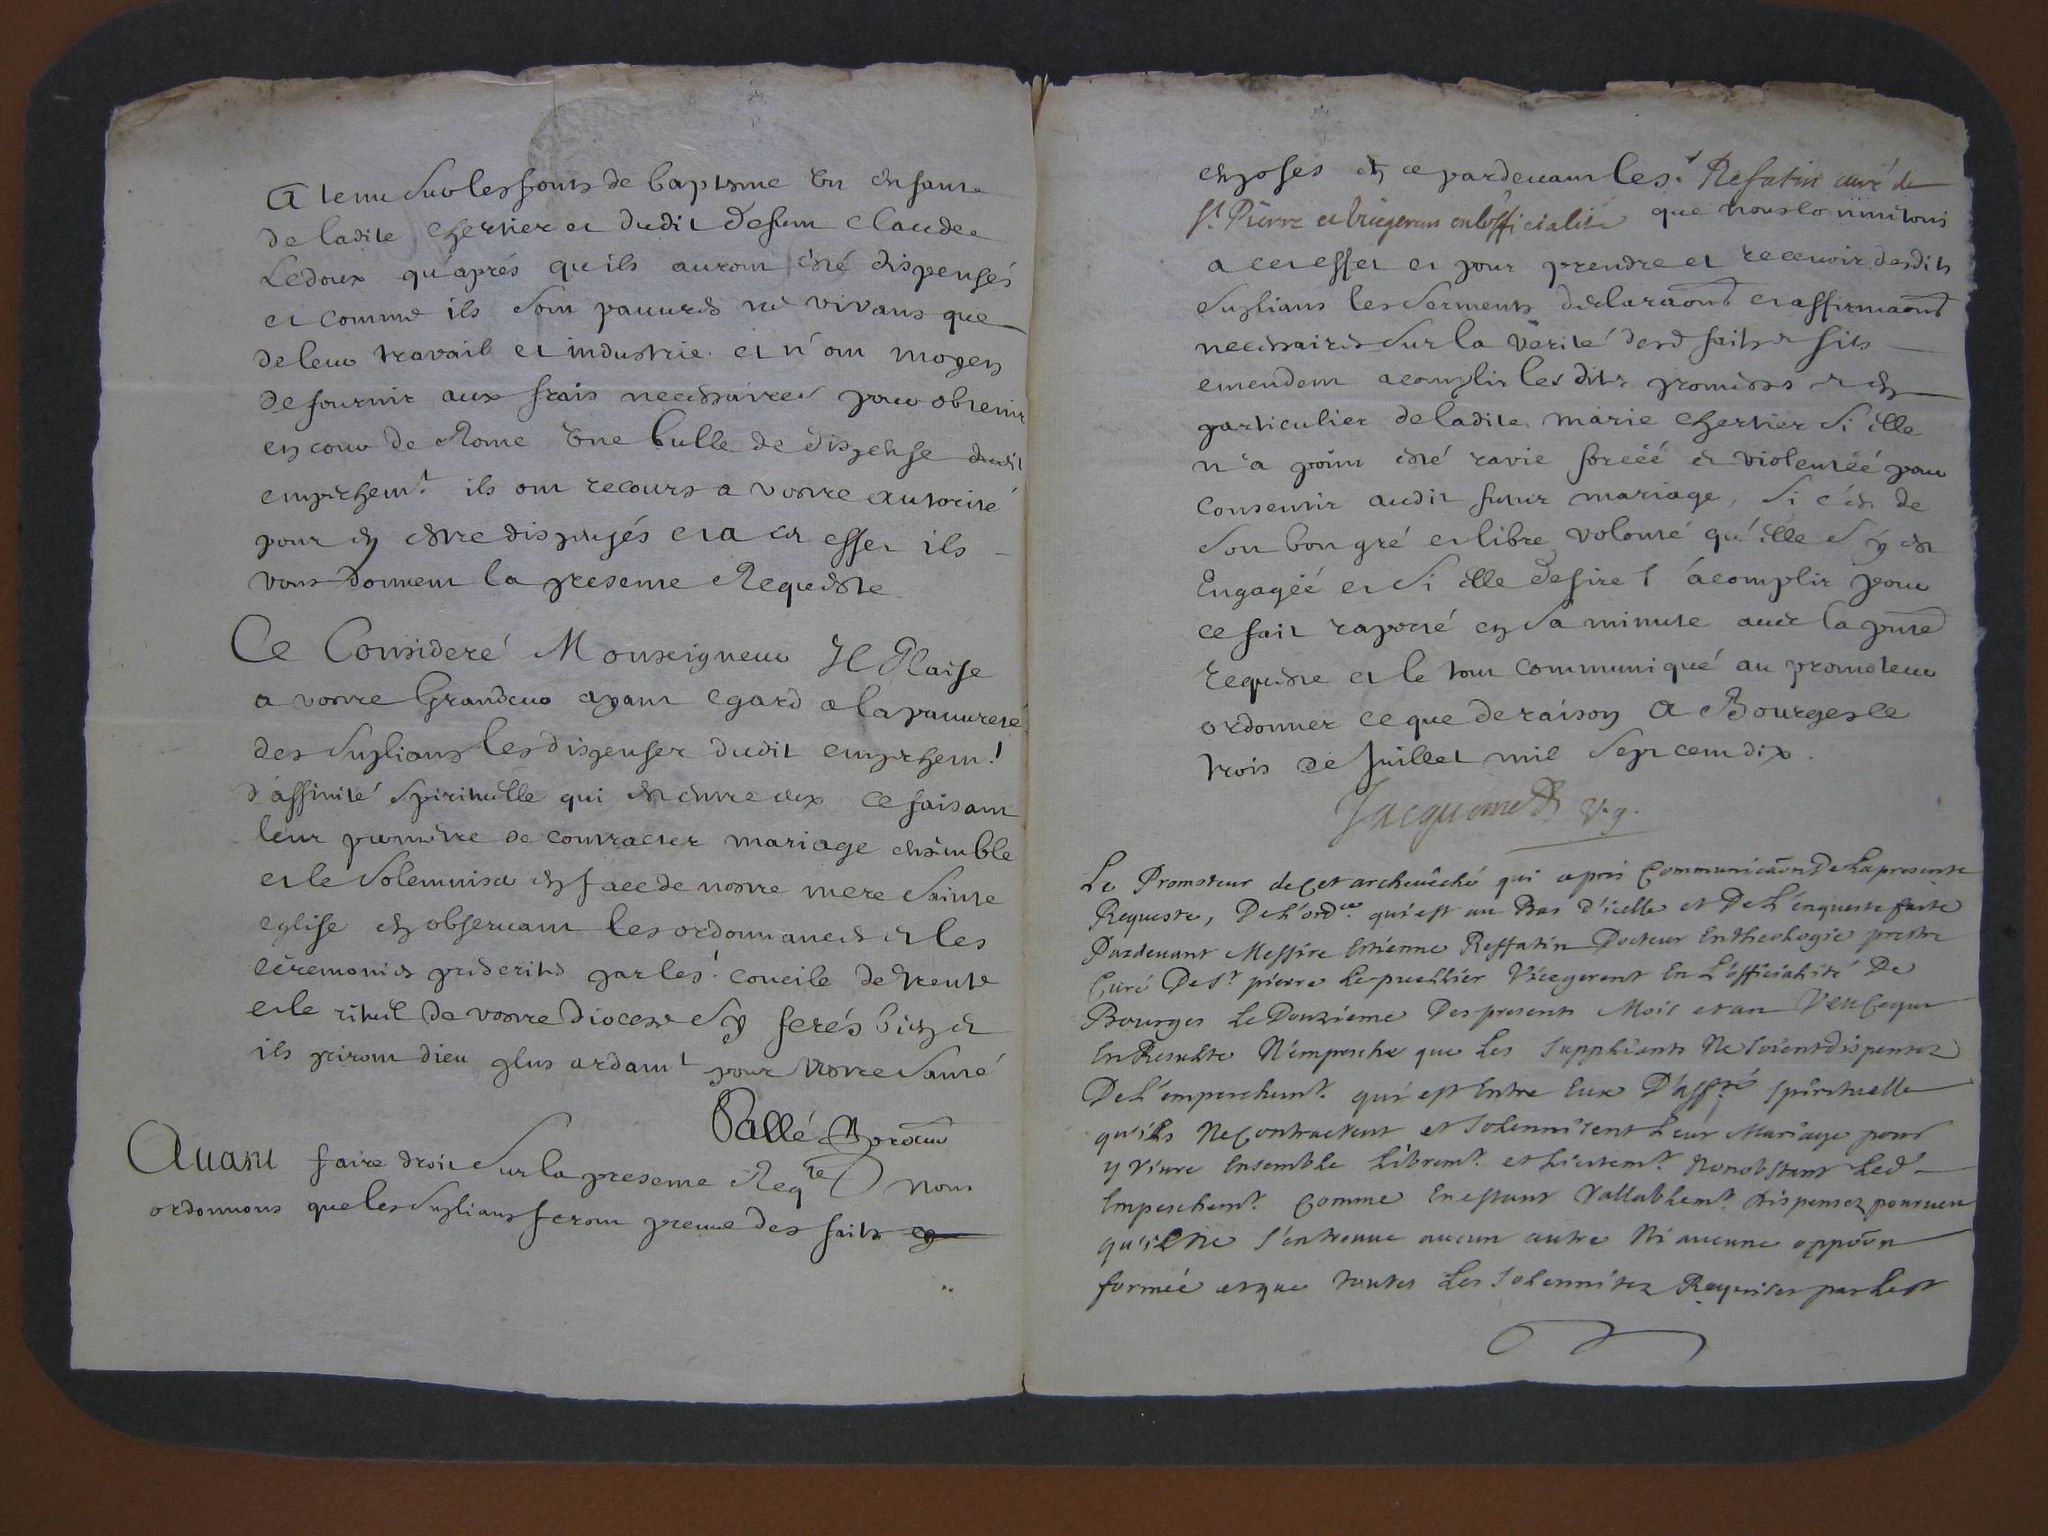 A tenu sur les fonts de baptesme un enfant
de ladite chertier et dudit defunt claude
Ledoux qu'aprés qu'ils auront esté dispensés
et comme ils sont pauures ne vivans que
de leur travail et industrie et n'ont moyen
de fournir aux frais necessaires pour obtenir
en cour de Rome une bulle de dispense dudit
empeshemt ils ont recours a vostre autorité
pour en estre dispensés et a cet effet ils
vous donnent la presente Requeste
Ce Consideré Monseigneur Il Plaise
a vostre Grandeur ayant egard a la pauureté
des suplians les dispenser dudit empeshemt
d'affinité spirituelle qui est entre eux ce faisant
leur permettre de contracter mariage ensemble
et le solemniser en face de nostre mere sainte
eglise en obseruant les ordonnances et les
céremonies prescrites par le st concile de trente
et le rituel de vostre diocese sy ferés bien et
ils priront dieu plus ardamt pour vostre santé
Pallé
Auant faire droit sur la presente Reqte nous
ordonnons que les suplians feront preuue des faits
exposés et ce pardeuant le sr Refatin curé de
st Pierre et vicegerent en l'officialité que nous commettons
a cet effet et pour prendre et receuoir desdits
suplians les serments declaraons et affirmaons
necessaires sur la verité desd faits sils
entendent acomplir les dits promesses et en
particulier de ladite marie chertier si elle
n'a point esté ravie forcéé et violentéé pour
consentir audit futur mariage, si c'est de
son bon gré et libre volonté qu'elle s'y est
Engagéé et si elle desire l'acomplir pour
ce fait raporté en sa minute auec la pnte
requeste et le tout communiqué au promoteur
ordonner ce que de raison A Bourges le
trois de Juillet mil sept cent dix.
Jacquemet v. g.
Le Promoteur de Cet archeuêché qui apris Communicaon De La presente
Requeste, De L'ordce qui est au Bas d'icelle et De L'enqueste faite
Pardeuant Messire Estienne Reffatin Docteur En theologie prestre
Curé De St pierre Le puellier Vicegerent En L'officialité De
Bourges Le Douzieme Des presents Mois et an Veu Ce qui
En Resulte N'empesche que Les Suppliants Ne soient dispensez
De L'empeschemt. qui est Entre Eux D'affté spirituelle
qu'ils Ne Contractent et solennisent Leur Mariage pour
y viure Ensemble Libremt. et Licitemt. Nonobstant Led.
Empeschemt. Comme En estant Vallablemt. Dispensez pourueu
qu'il Ne s'en treuue aucun autre Ni aucune oppoon
formée et que toutes Les solennitez Requises par Le st